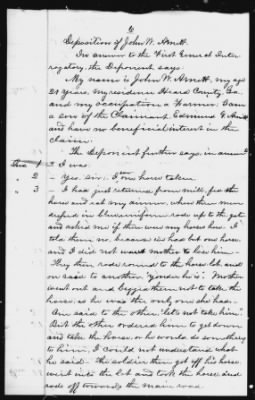 6
Deposition of John W. Arnett.
In answer to the First General Inter-
rogatory, the Deponent says:
My name is John W. Arnett, my age
21 years, my residence Heard County, Ga.
and my occupation a Farmer; I am
a son of the Claimant Edmund G. Arnett
and have no beneficial interest in the
Claim.
The Deponent further says, in answer
1 - I was.
2 - Yes. Sir. 1 horse taken.
3 - I had just returned from mill, fed the
horse and eat my dinner, when three men
dressed in blue uniform rode up to the gate
and asked me if there were any horses here. I
told them no, because we had but one horse,
and I did not want Mother to lose him.
They then rode around to the horse lot and
on said to another "yonder he is". Mother
went out and begged them not to take the
horse, as he was the only one she had.
One said to the other "let's not take him".
But the other ordered him to get down
and take the horse, or he would do something
to him, I could not understand what
he said. The soldier then got off his horse
went into the lot and took the horse and
rode off towards the main road.